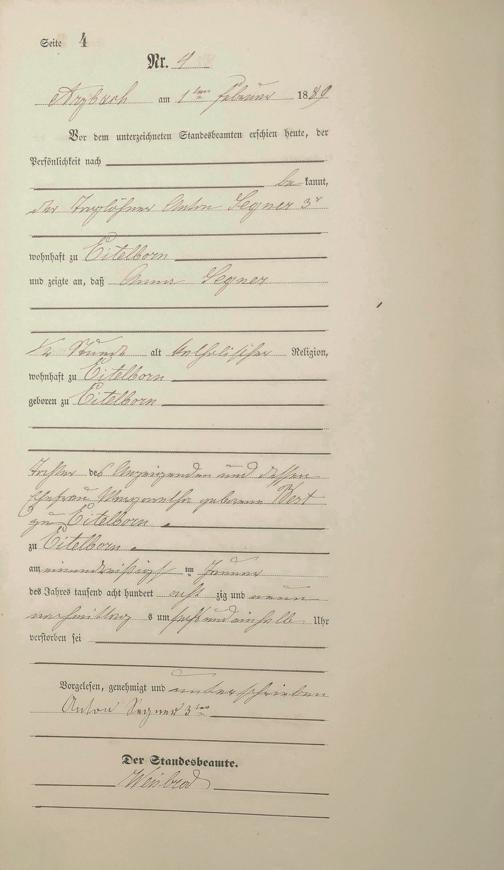 Seite 4
Nr. 4
Arzbach am 1ten Februar 1889
Vor dem unterzeichneten Standesbeamten erschien heute, der
Persönlichkeit nach
be kannt,
der Taglöhner Anton Segner 3r
wohnhaft zu Eitelborn
und zeigte an, daß Anna Segner
1/2 Stunde alt katholischer Religion,
wohnhaft zu Eitelborn
geboren zu Eitelborn
Tochter des Anzeigenden und dessen
Ehefrau Margaretha geborene
zu Eitelborn
zu Eitelborn
am einunddreißigst en Januar
des Jahres tausend acht hundert acht zig und neun
nachmittag s um und einhalb Uhr
verstorben sei
Vorgelesen, genehmigt und unterschrieben
Anton Segner 3ter
Der Standesbeamte.